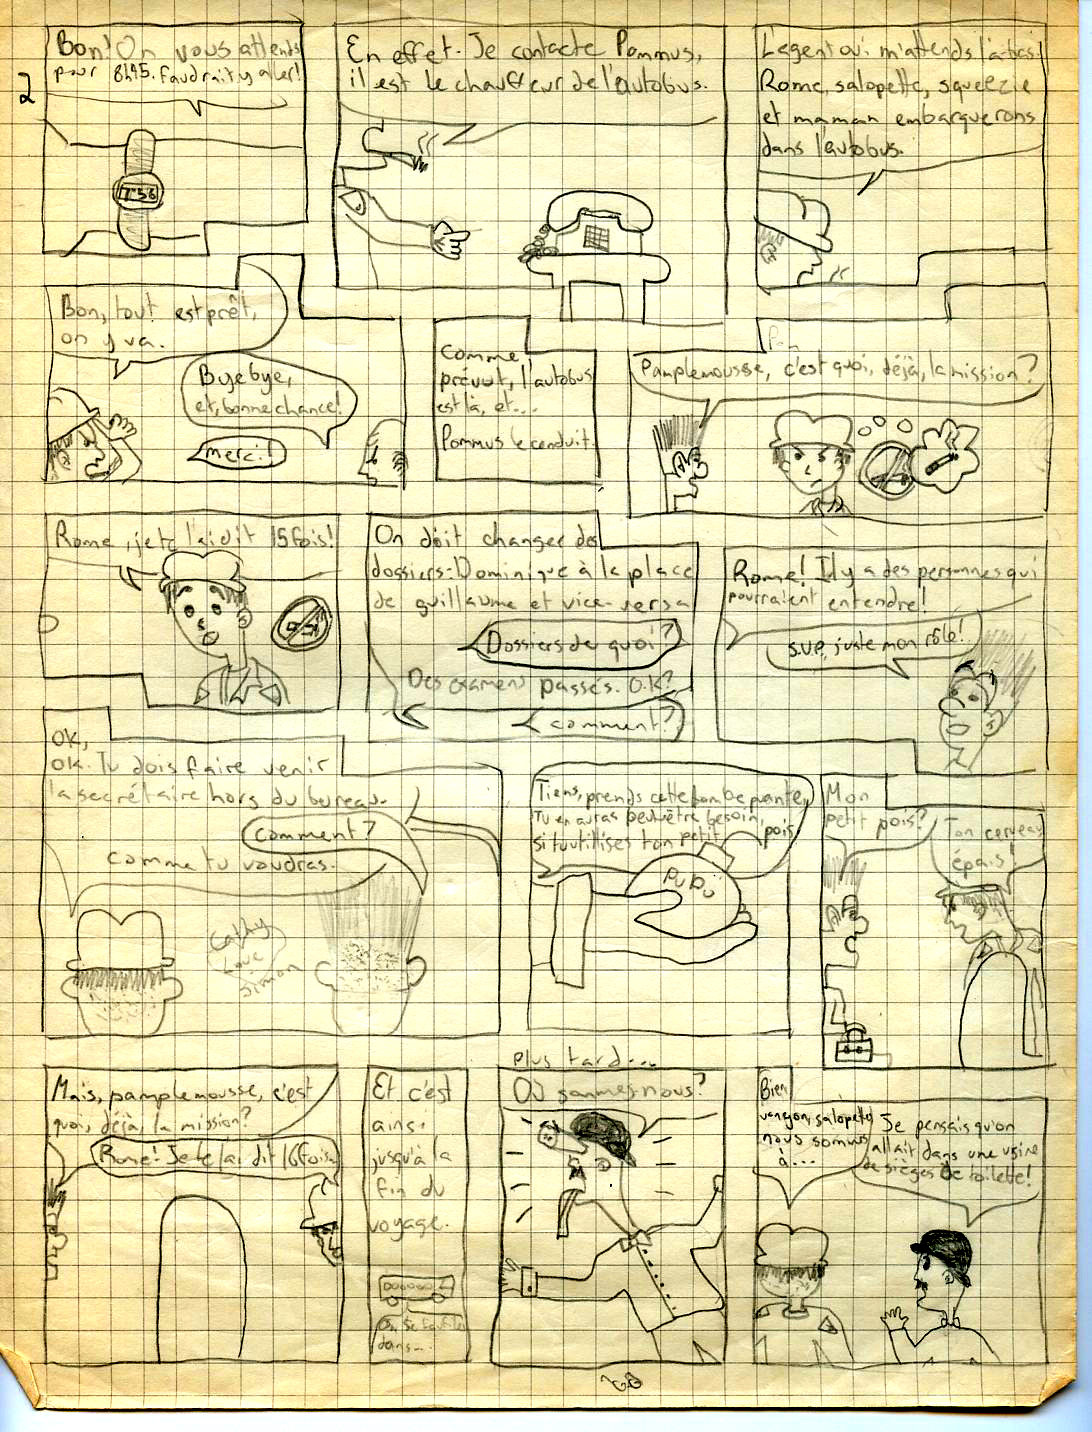 2
Bon! On vous attends
pour 8h45. faudrait y aller!
7:56
En effet. Je contacte Pommus,
il est le chauffeur de l'autobus.
L'agent qui m'attends là-bas,
Rome, salopette, squeezie
et maman embarquerons
dans l'autobus.
Bon, tout est prêt,
on y va.
Bye bye,
et, bonne chance!
merci!
Comme
prévut, l'autobus
est là, et...
Pommus le conduit.
Pamplemousse, c'est quoi, déjà, la mission?
Rome, je te l'ai dit 15 fois!
On doit changer des
dossiers: Dominique à la place
de guillaume et vice-versa
Dossiers de quoi?
Des examens passés. O.K?
comment?
Rome! Il y a des personnes qui
pourraient entendre!
S.V.P., juste mon rôle!
OK,
OK. Tu dois faire venir
la secrétaire hors du bureau.
comment?
comme tu voudras.
Cathy
Love
Simon
Tiens, prends cette bombe puante,
Tu en auras peut-être besoin,
si tu utilises ton petit pois.
PuBu
Mon
petit pois?
Ton cerveau
épais!
Mais, pamplemousse, c'est
quoi, déjà, la mission?
Rome! Je te l'ai dit 16 fois
Et c'est
ainsi
jusqu'à la
fin du
voyage.
On se
dans...
Plus tard...
Où sommes-nous?
Bien
voyon, salopette,
nous sommes
à...
Je pensais qu'on
allait dans une usine
de sièges de toilette!